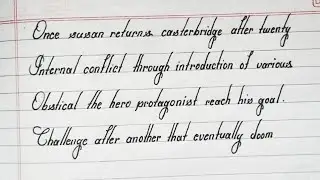 Once susan returns casterbridge after twenty
Internal conflict through introduction of various
Obstical the hero protagonist reach his goal.
Challenge after another that eventually doom